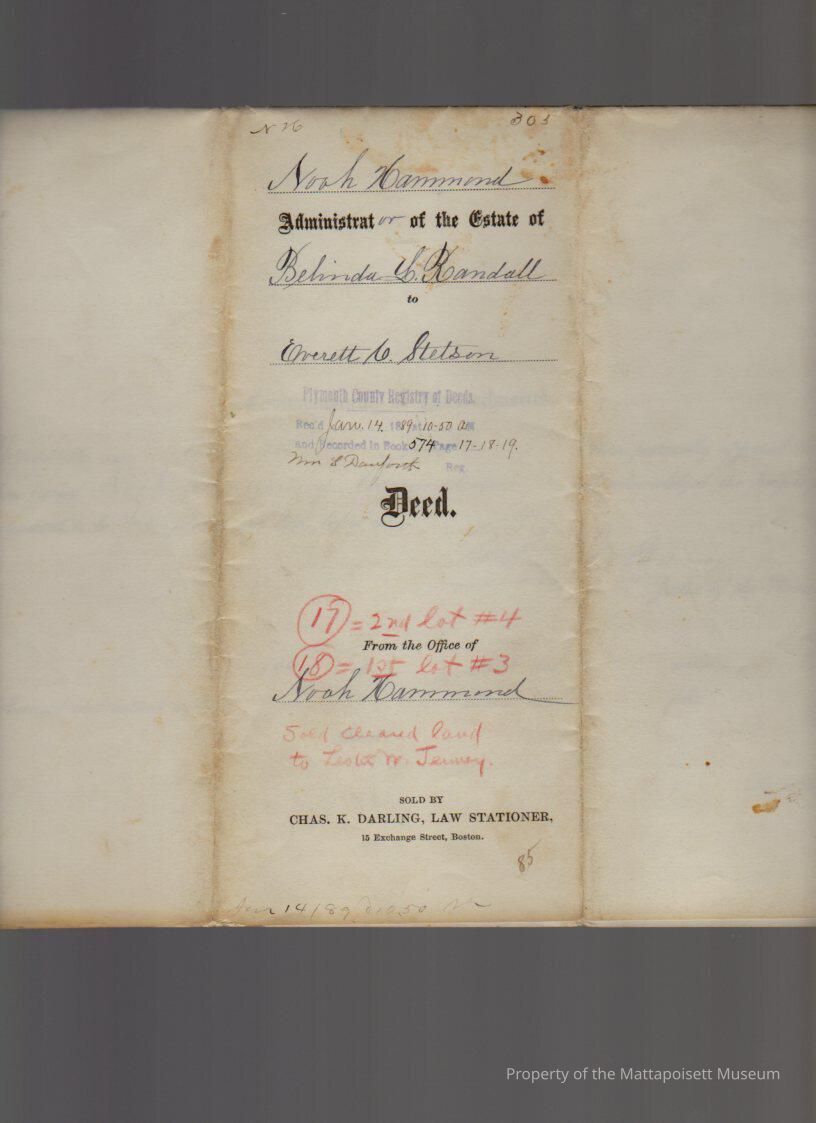 303
Noah Hammond
Administrator of the Estate of
Belinda L. Randall
to
Everett C. Stetson
Plymouth County Registry of Deeds.
Rec'd Jan. 14. 1889 at 10-50 AM
and Recorded in Book 574 Page 17-18-19.
Wm S Danforth
Reg
Deed.
17 = 2nd lot #4
From the Office of
18 = 1st lot #3
Noah Hammond
Sold cleared land
to W. Jenney.
SOLD BY
CHAS. K. DARLING, LAW STATIONER,
15 Exchange Street, Boston.
85
Jan 14/89
Property of the Mattapoisett Museum